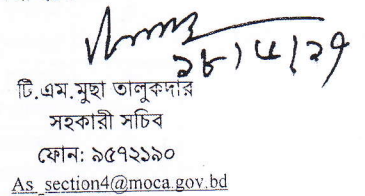 ২৮/৫/২৭
টি.এম.মুছা তালুকদার
সহকারী সচিব
ফোন: ৯৫৭২১৯০
As_section4@moca.gov.bd